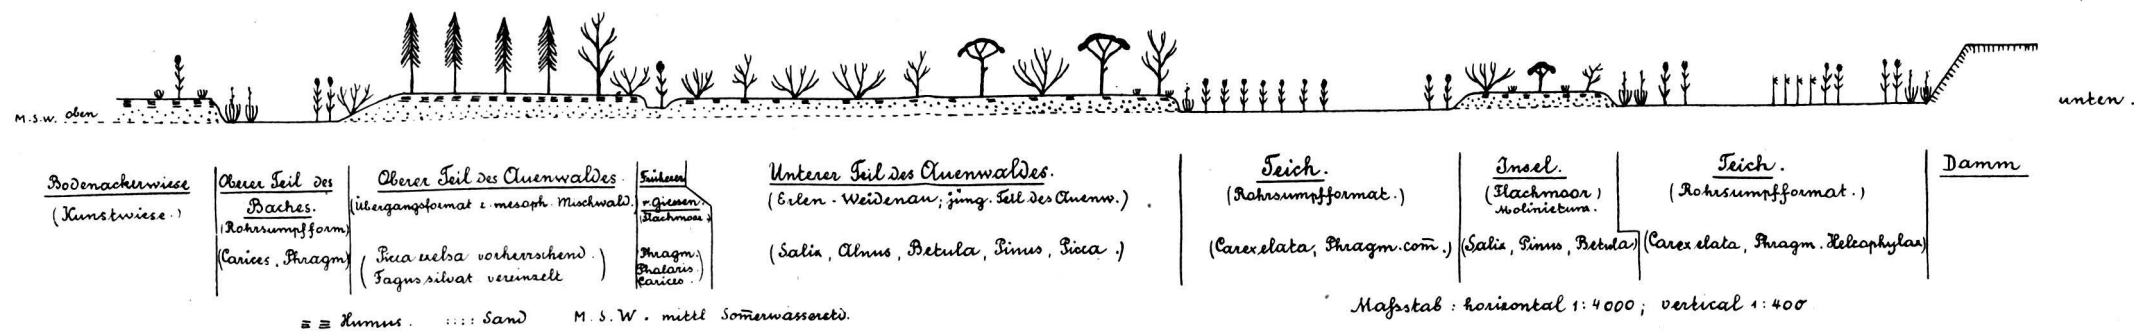 M.S.W. oben
unten.
Bodenackerwiese
(Kunstwiese.)
Oberer Teil des
Baches.
(Rohrsumpfform)
(Carices, Phragm)
Oberer Teil des Auenwaldes.
(Übergangsformat z. mesoph. Mischwald.)
(Picea excelsa vorherrschend.
Fagus silvat vereinzelt)
Früherer
r. Giessen.
(Flachmoor)
Phragm.
Phalaris.
Carices.
Unterer Teil des Auenwaldes.
(Erlen-Weidenau; jüng. Teil des Auenw.)
(Salix, Alnus, Betula, Pinus, Picea.)
Teich.
(Rohrsumpfformat.)
(Carex elata, Phragm. com̄.)
Insel.
(Flachmoor)
Molinietum.
(Salix, Pinus, Betula)
Teich.
(Rohrsumpfformat.)
(Carex elata, Phragm. Heleophylax)
Damm
Humus. Sand M.S.W. mittl Som̄erwasserstd.
Maßstab: horizontal 1:4000; vertical 1:400